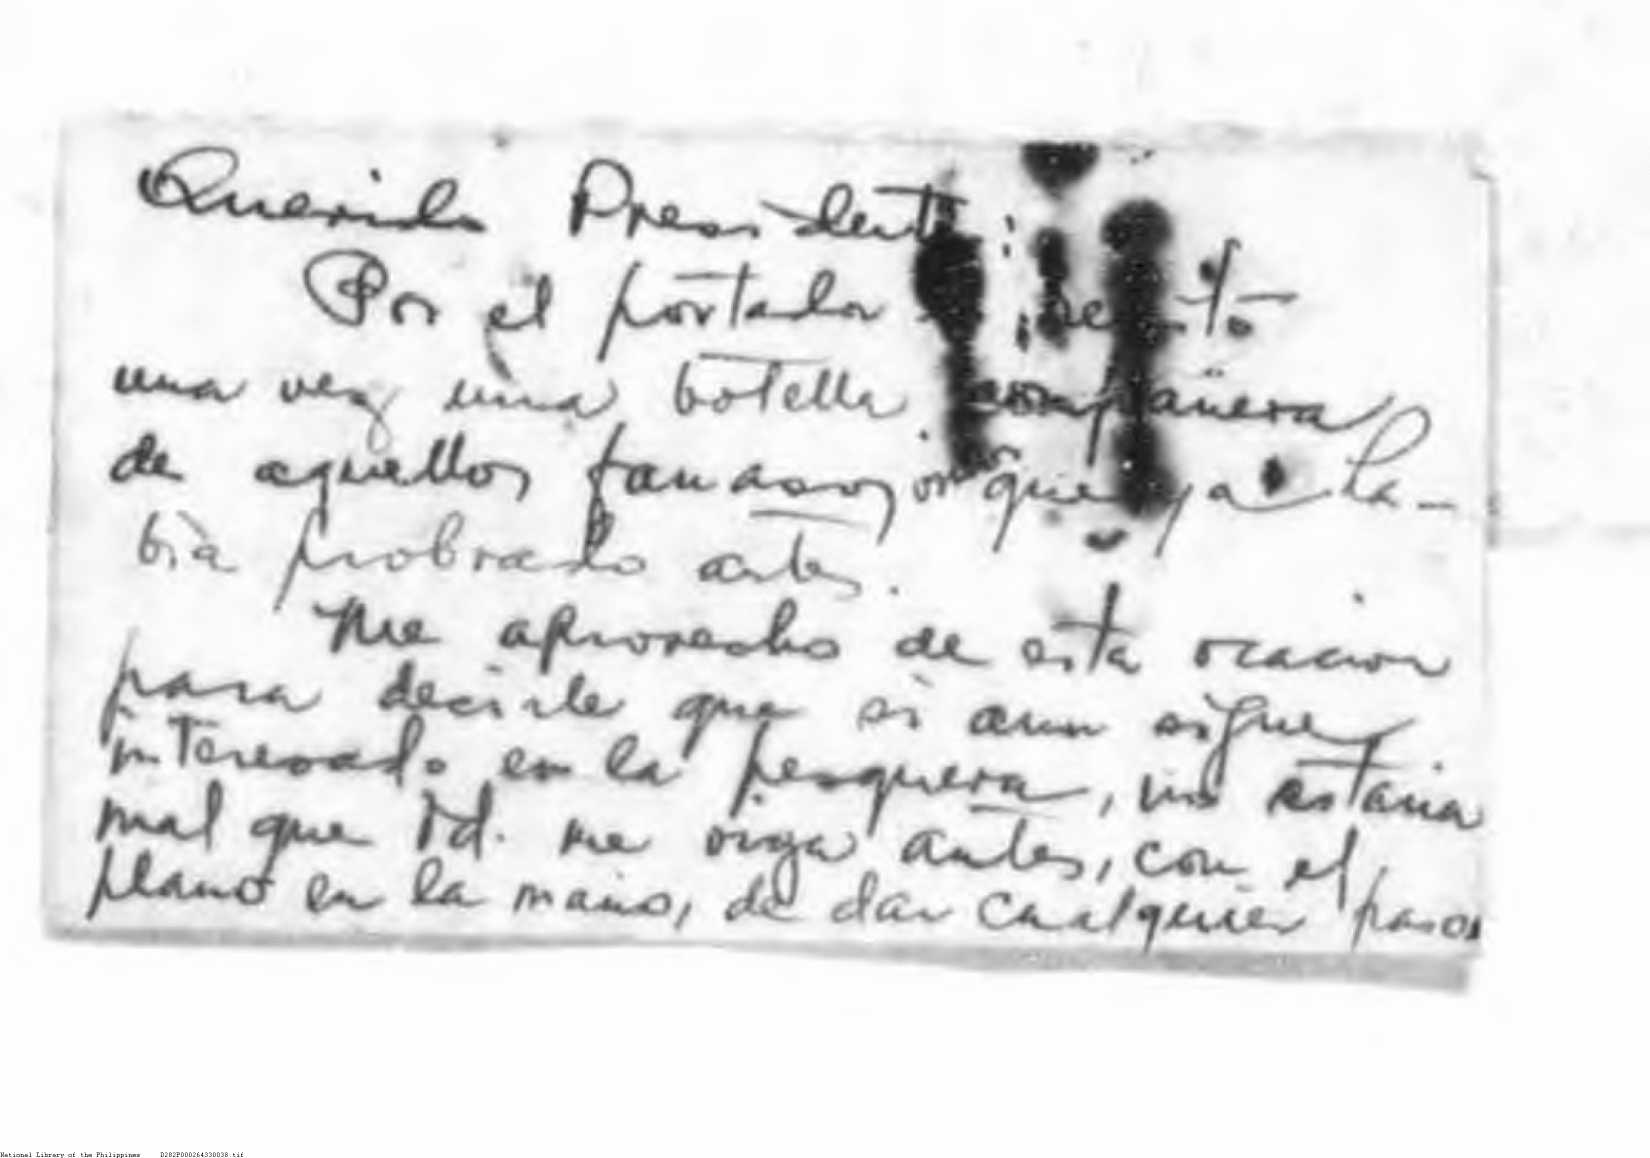 Querido Presidente:
Por el portador
una vez una botella compañera
de aquellos famosos que ya ha-
bia probrado antes.
Me aprovecho de esta ocacion
para decirle que si aun sigue
interesado en la pesquera, no estaria
mal que Vd. me oiga antes, con el
plano en la mano, de dar cualquier paso.
National Library of the Philippines D282P000264330038.tif